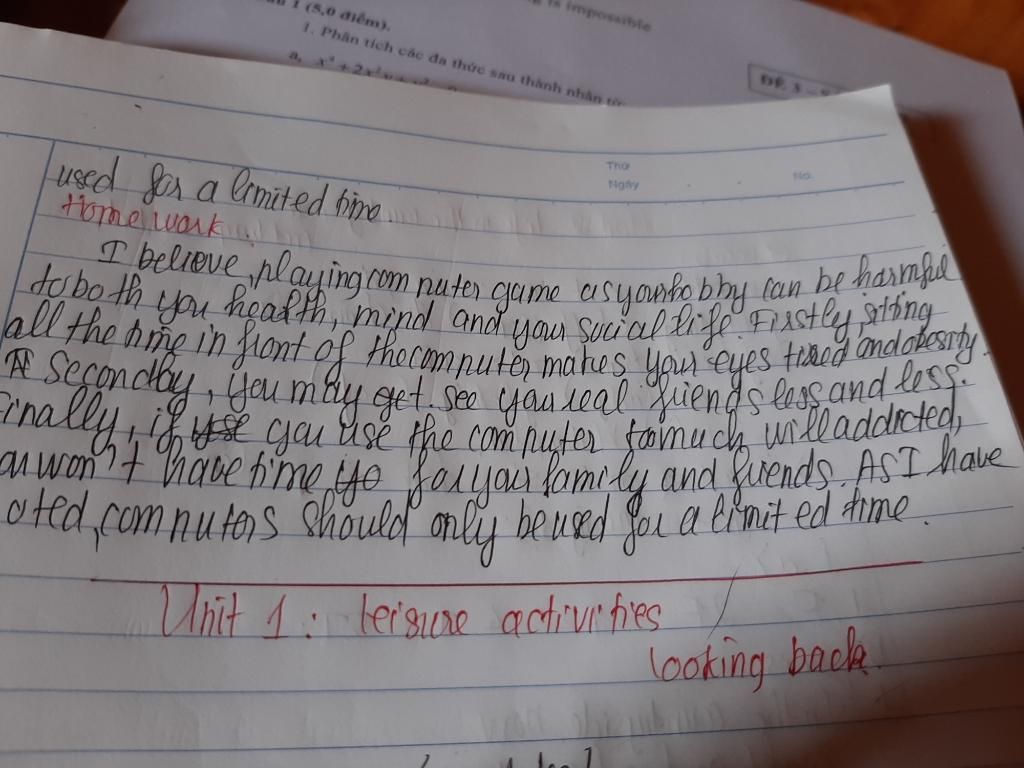 g is impossible
1 (5,0 điểm).
1. Phân tích các đa thức sau thành nhân tử:
a,
ĐỀ 3
Thứ
Ngày
No.
used for a limited time
Homework
I believe, playing computer game as your hobby can be harmful
to both you health, mind and your social life. Firstly, sitting
all the time in front of the computer makes your eyes tired and obesity.
Secondby, you may get see you real friends less and less.
Finally, if use you use the computer to much will addicted,
ou won't have time to for your family and friends. As I have
oted, computers should only be used for a limited time.
Unit 1: leisure activities
looking back.